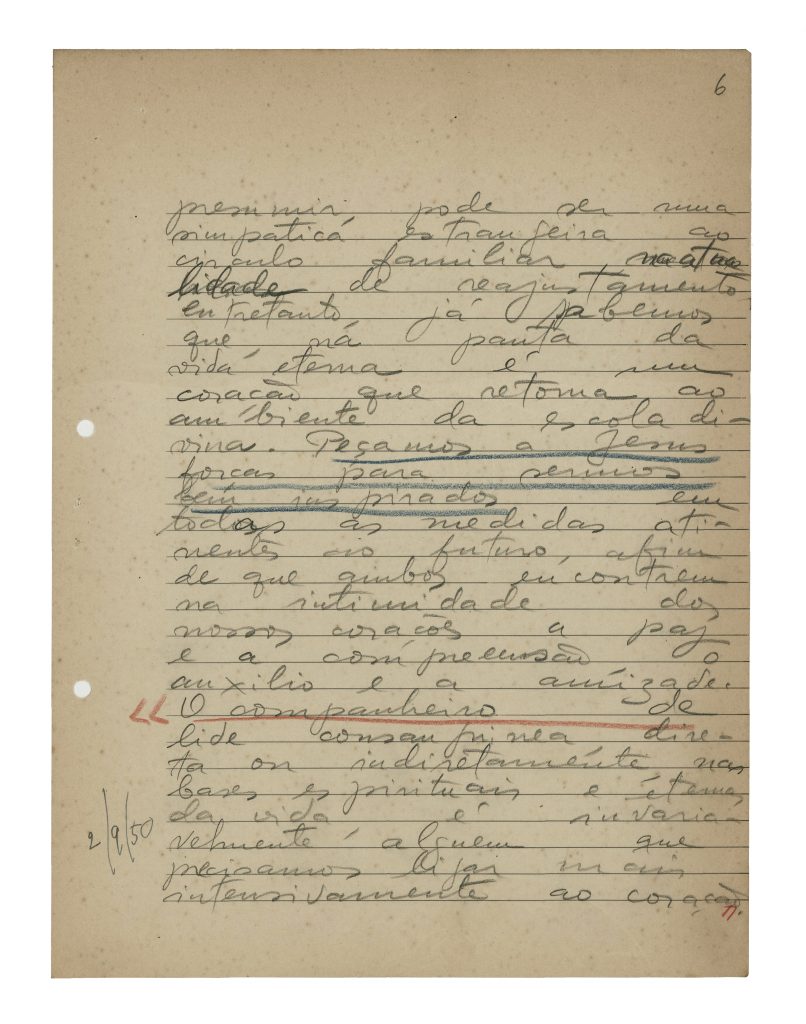 6
presumir, pode ser uma
simpaticá estrangeira ao
circulo familiar, na atua
lidade de reajustamento,
entretanto já sabemos
que, ná pauta da
vida eterna é um
coracão que retorna ao
ambiente da escola di-
vina. Peçamos a Jesus
forcas para sermos
bem inspirados em
todas as medidas ati-
nentes ao futuro, afim
de que ambos encontrem
na intimidade dos
nossos coracões a paz
e a compreensão o
auxilio e a amizade.
« O companheiro de
lide consanguinea dire-
ta ou indiretamente nas
bases espirituais e eternas
da vida é invaria-
velmente alguem que
precisamos ligar mais
intensivamente ao coração
2/9/50